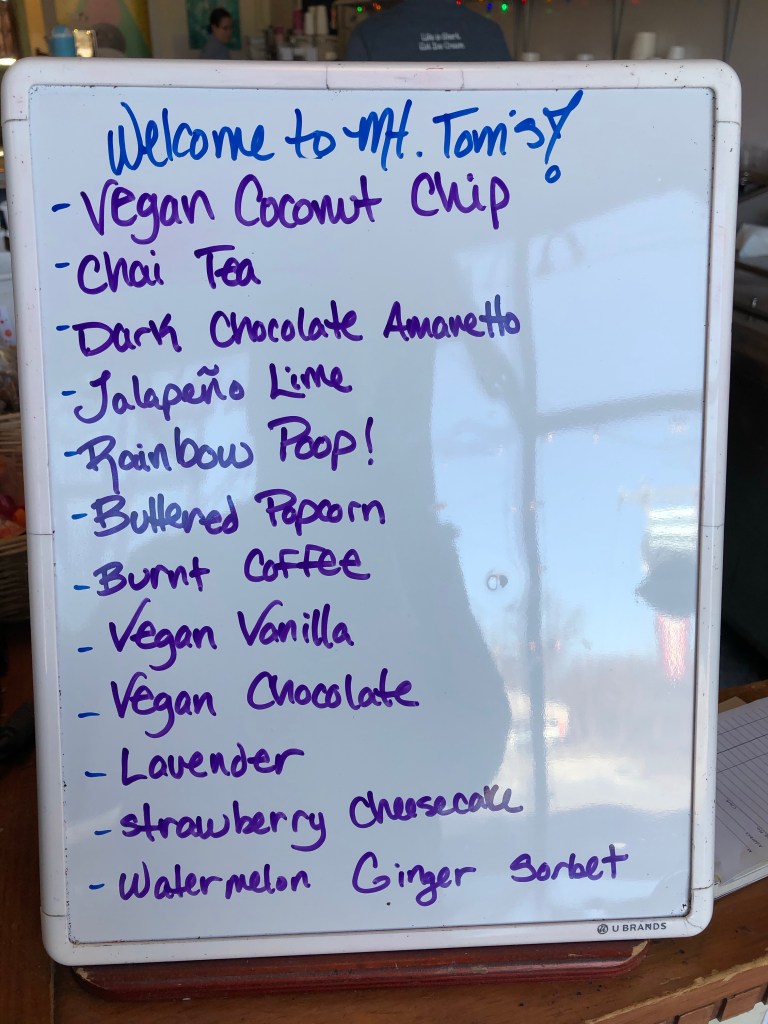 Life is Short.
Eat Ice Cream
Welcome to Mt. Tom's!
- Vegan Coconut Chip
- Chai Tea
- Dark Chocolate Amaretto
- Jalapeño Lime
- Rainbow Poop!
- Buttered Popcorn
- Burnt Coffee
- Vegan Vanilla
- Vegan Chocolate
- Lavender
- strawberry cheesecake
- Watermelon Ginger Sorbet
U BRANDS